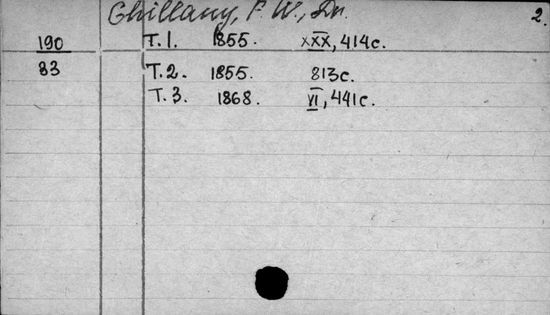 Ghillany, F. W., Dr. 2.
190 T. 1. 1855. XXX, 414 c.
83 T. 2. 1855. 813 c.
T. 3. 1868. VI, 441 c.